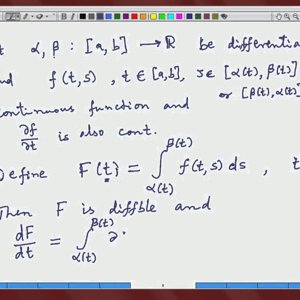 α, β : [a, b] → ℝ be differentia
f(t, s), t ∈ [a, b], s ∈ [α(t), β(t)]
or [β(t), α(t)]
continuous function and
∂f/∂t is also cont.
Define F(t) = ∫_{α(t)}^{β(t)} f(t, s) ds, t
Then F is diffble and
dF/dt = ∫_{α(t)}^{β(t)} ∂